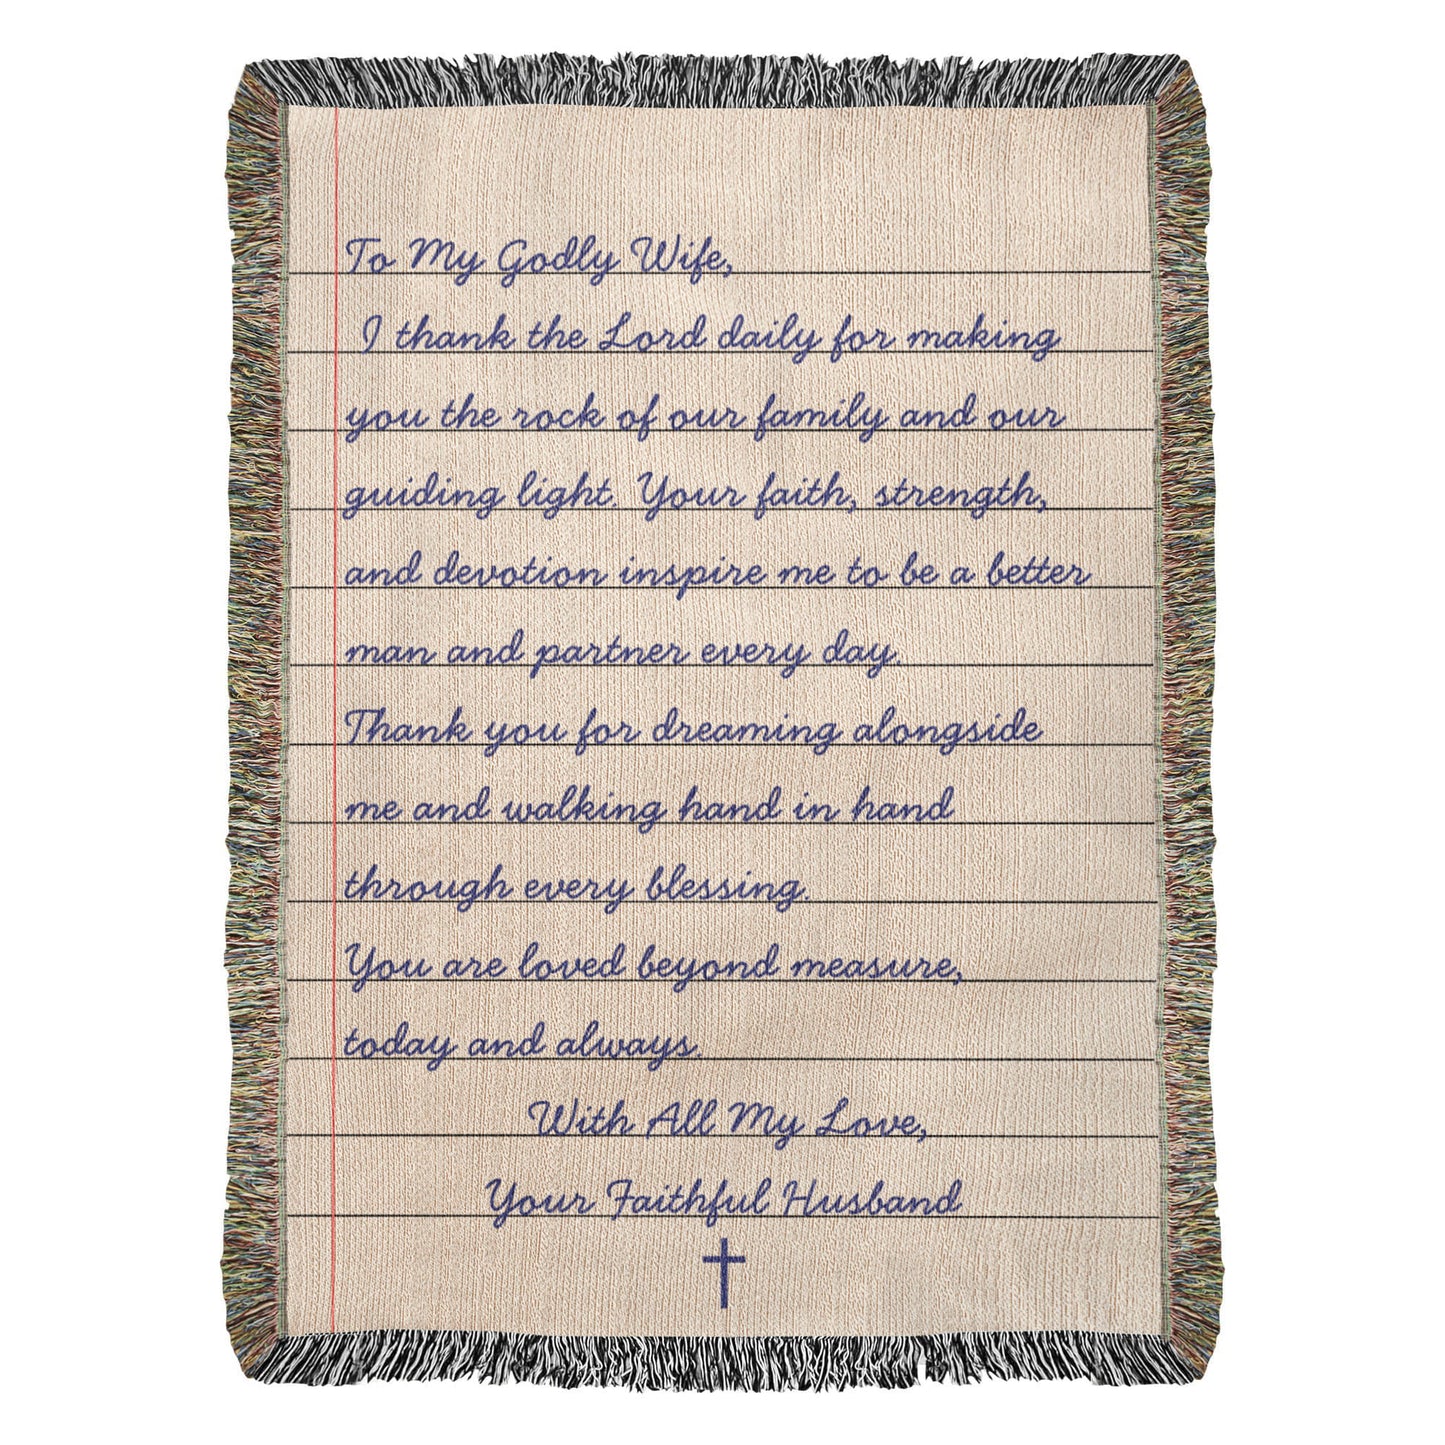 To My Godly Wife,
I thank the Lord daily for making
you the rock of our family and our
guiding light. Your faith, strength,
and devotion inspire me to be a better
man and partner every day.
Thank you for dreaming alongside
me and walking hand in hand
through every blessing.
You are loved beyond measure,
today and always.
With All My Love,
Your Faithful Husband